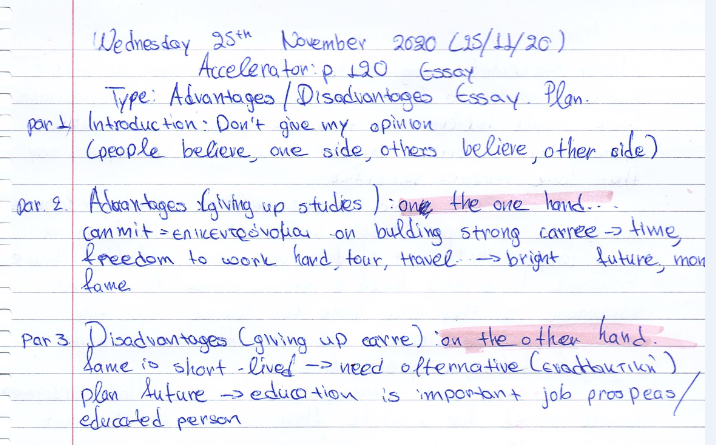 Wednesday 25th November 2020 (25/11/20)
Accelerator: p 120 Essay
Type: Advantages / Disadvantages Essay. Plan.
par 1 Introduction: Don't give my opinion
(people believe, one side, others believe, other side)
par. 2 Advantages :(giving up studies) : one the one hand...
canmit = επικεντρώνομαι on bulding strong carree → time,
freedom to work hard, tour, travel → bright future, mon
fame
par 3 Disadvantages (giving up carre) : on the other hand.
fame is short-lived → need alternative (εναλλακτική)
plan future → education is important job prospeas/
educated person